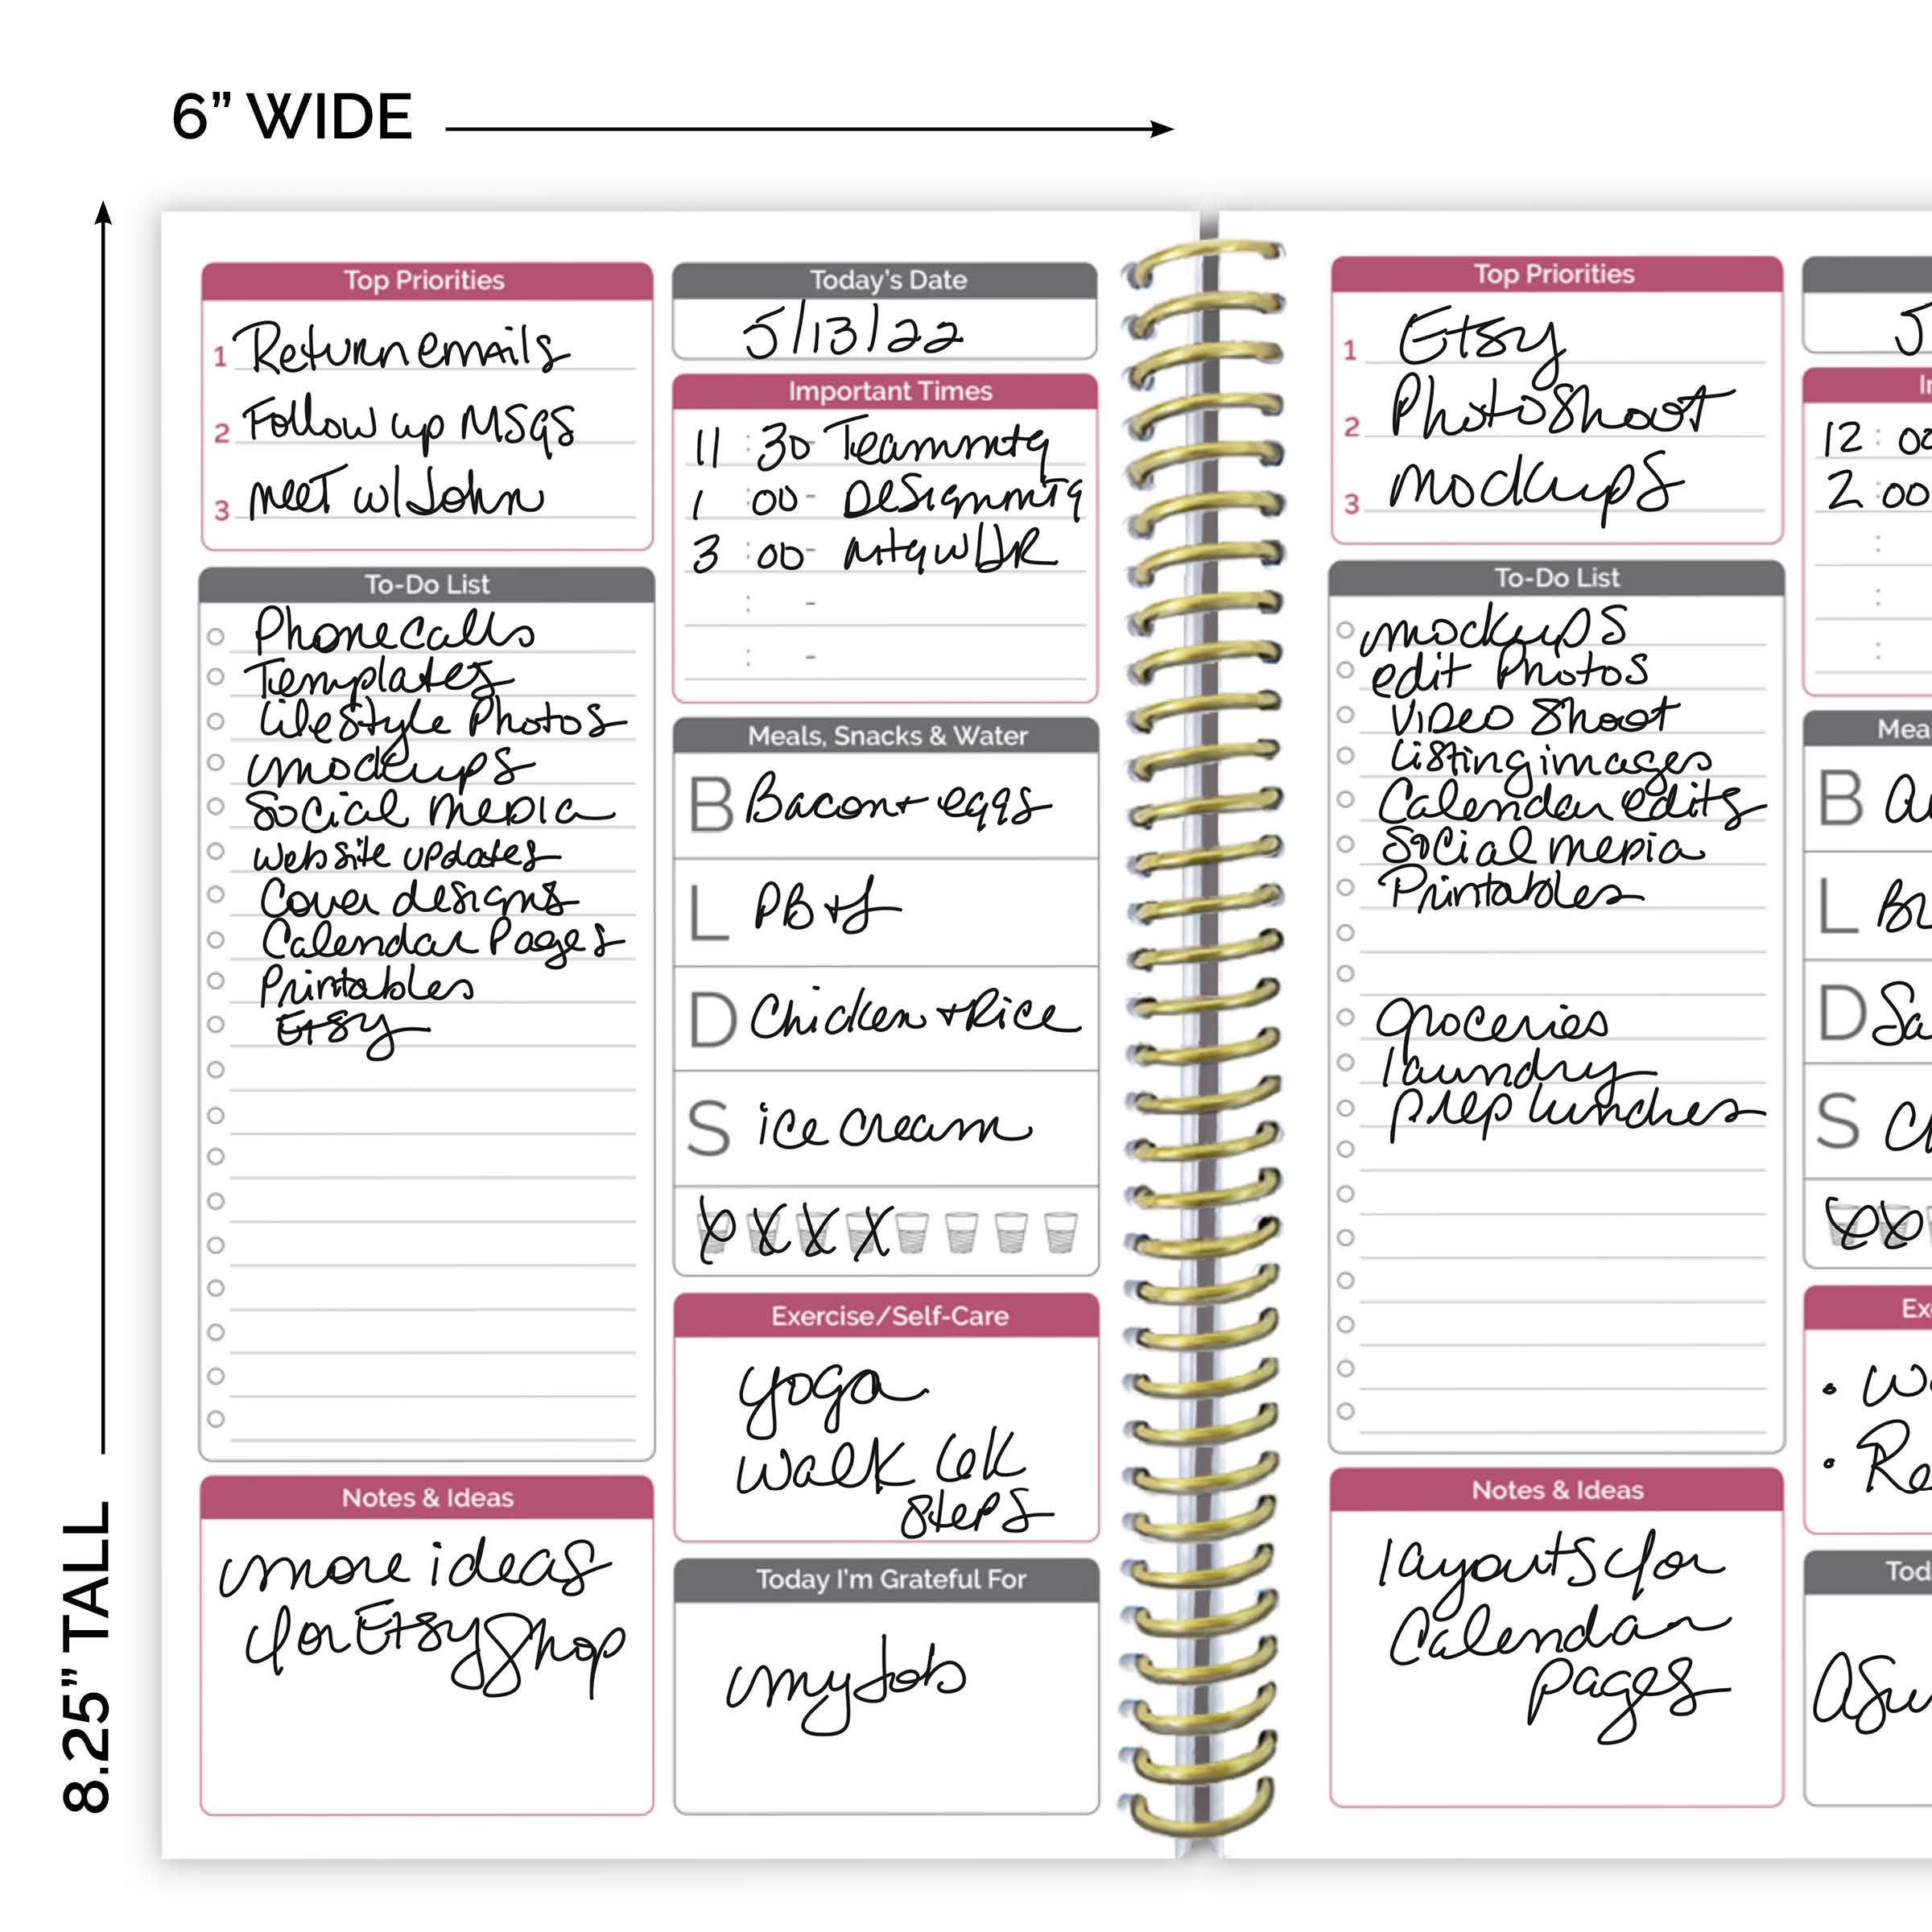 6” WIDE
8.25” TALL
Top Priorities
1 Return emails
2 Follow up MSGS
3 meet w/John
To-Do List
Phone calls
Templates
Lifestyle Photos
mockups
Social media
website updates
Cover designs
Calendar Pages
Printables
Etsy
Notes & Ideas
more ideas
for Etsy Shop
Today's Date
5/13/22
Important Times
11 : 30 - Team mtg
1 : 00 - Design mtg
3 : 00 - mtg w/HR
: -
: -
Meals, Snacks & Water
B Bacon + eggs
L PB + J
D Chicken + Rice
S ice cream
Exercise/Self-Care
yoga
walk 6k
steps
Today I'm Grateful For
my Job
Top Priorities
1 Etsy
2 Photoshoot
3 mockups
To-Do List
mockups
edit Photos
Video Shoot
listing images
Calendar edits
Social media
Printables
groceries
laundry
prep lunches
Notes & Ideas
layouts for
Calendar
pages
5
12 : 00
2 : 00
:
:
:
B
L
D
S